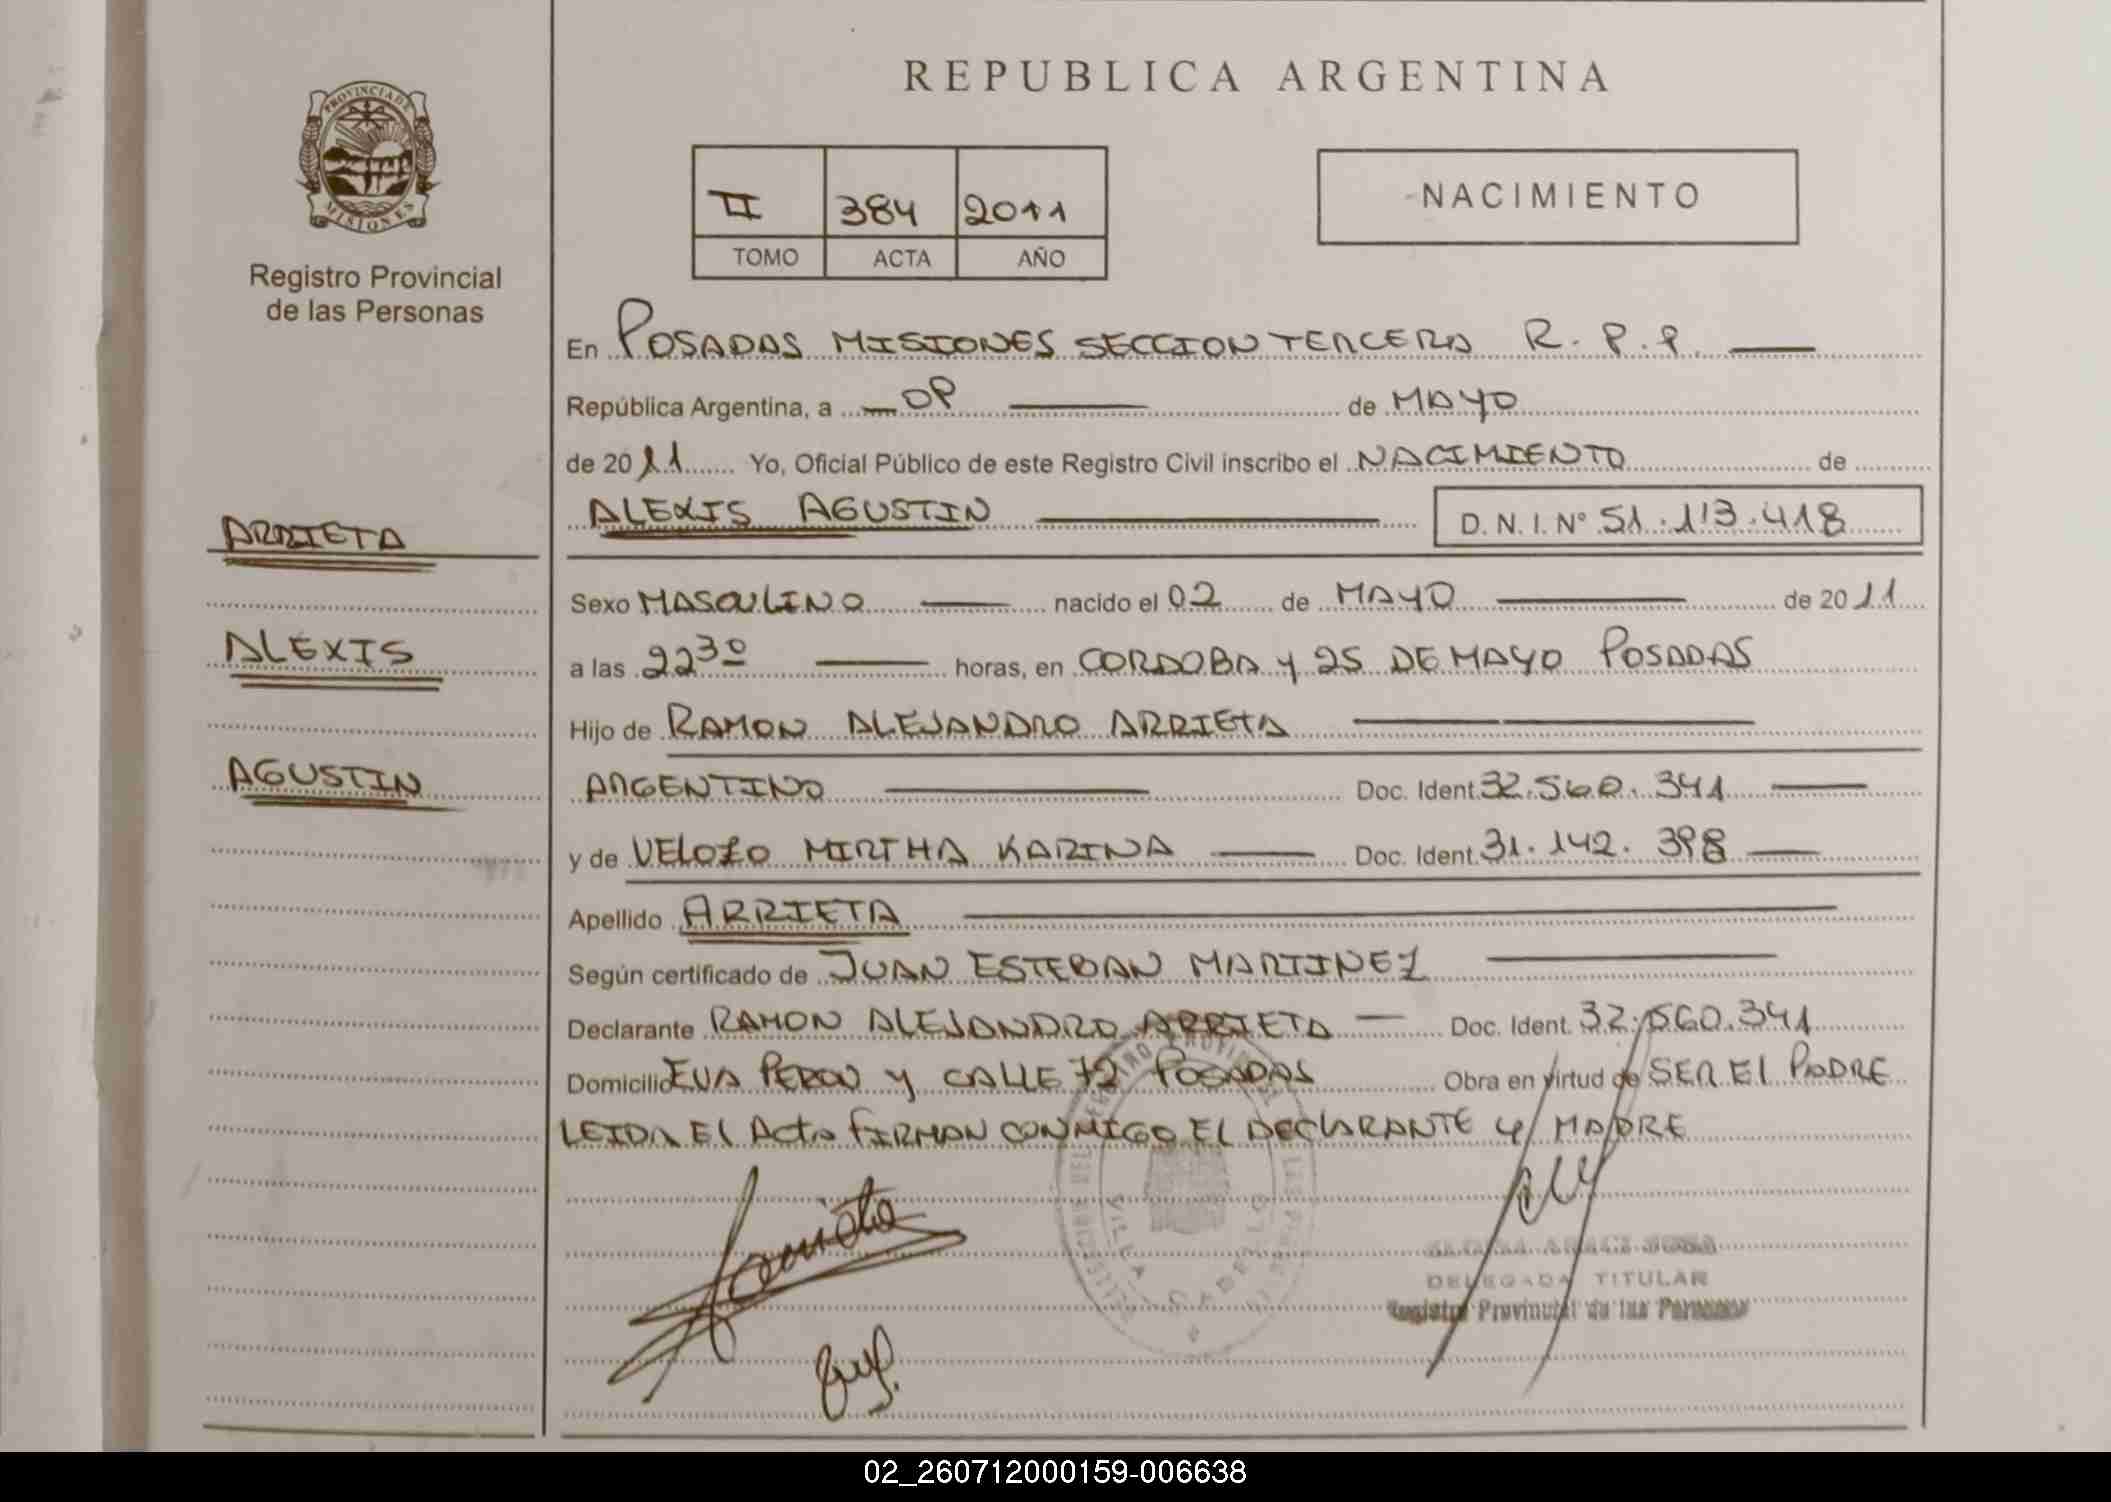 REPUBLICA ARGENTINA
PROVINCIA DE
MISIONES
Registro Provincial
de las Personas
II 384 2011
TOMO ACTA AÑO
NACIMIENTO
En POSADAS MISIONES SECCION TERCERA R. P. P.
República Argentina, a 09 de MAYO
de 2011 Yo, Oficial Público de este Registro Civil inscribo el NACIMIENTO de
ALEXIS AGUSTIN D. N. I. Nº 51.113.418
ARRIETA
Sexo MASCULINO nacido el 02 de MAYO de 2011
ALEXIS
a las 22 30 horas, en CORDOBA y 25 DE MAYO POSADAS
Hijo de RAMON ALEJANDRO ARRIETA
AGUSTIN
ARGENTINO Doc. Ident. 32.560.341
y de VELOZO MIRTHA KARINA Doc. Ident. 31.142.398
Apellido ARRIETA
Según certificado de JUAN ESTEBAN MARTINEZ
Declarante RAMON ALEJANDRO ARRIETA Doc. Ident. 32.560.341
Domicilio EVA PERON y CALLE 72 POSADAS Obra en virtud de SER EL PADRE
LEIDA EL ACTA FIRMAN CONMIGO EL DECLARANTE Y MADRE
Arrieta
VILLA CABELLO
DELEGADA TITULAR
Registro Provincial de las Personas
02_260712000159-006638